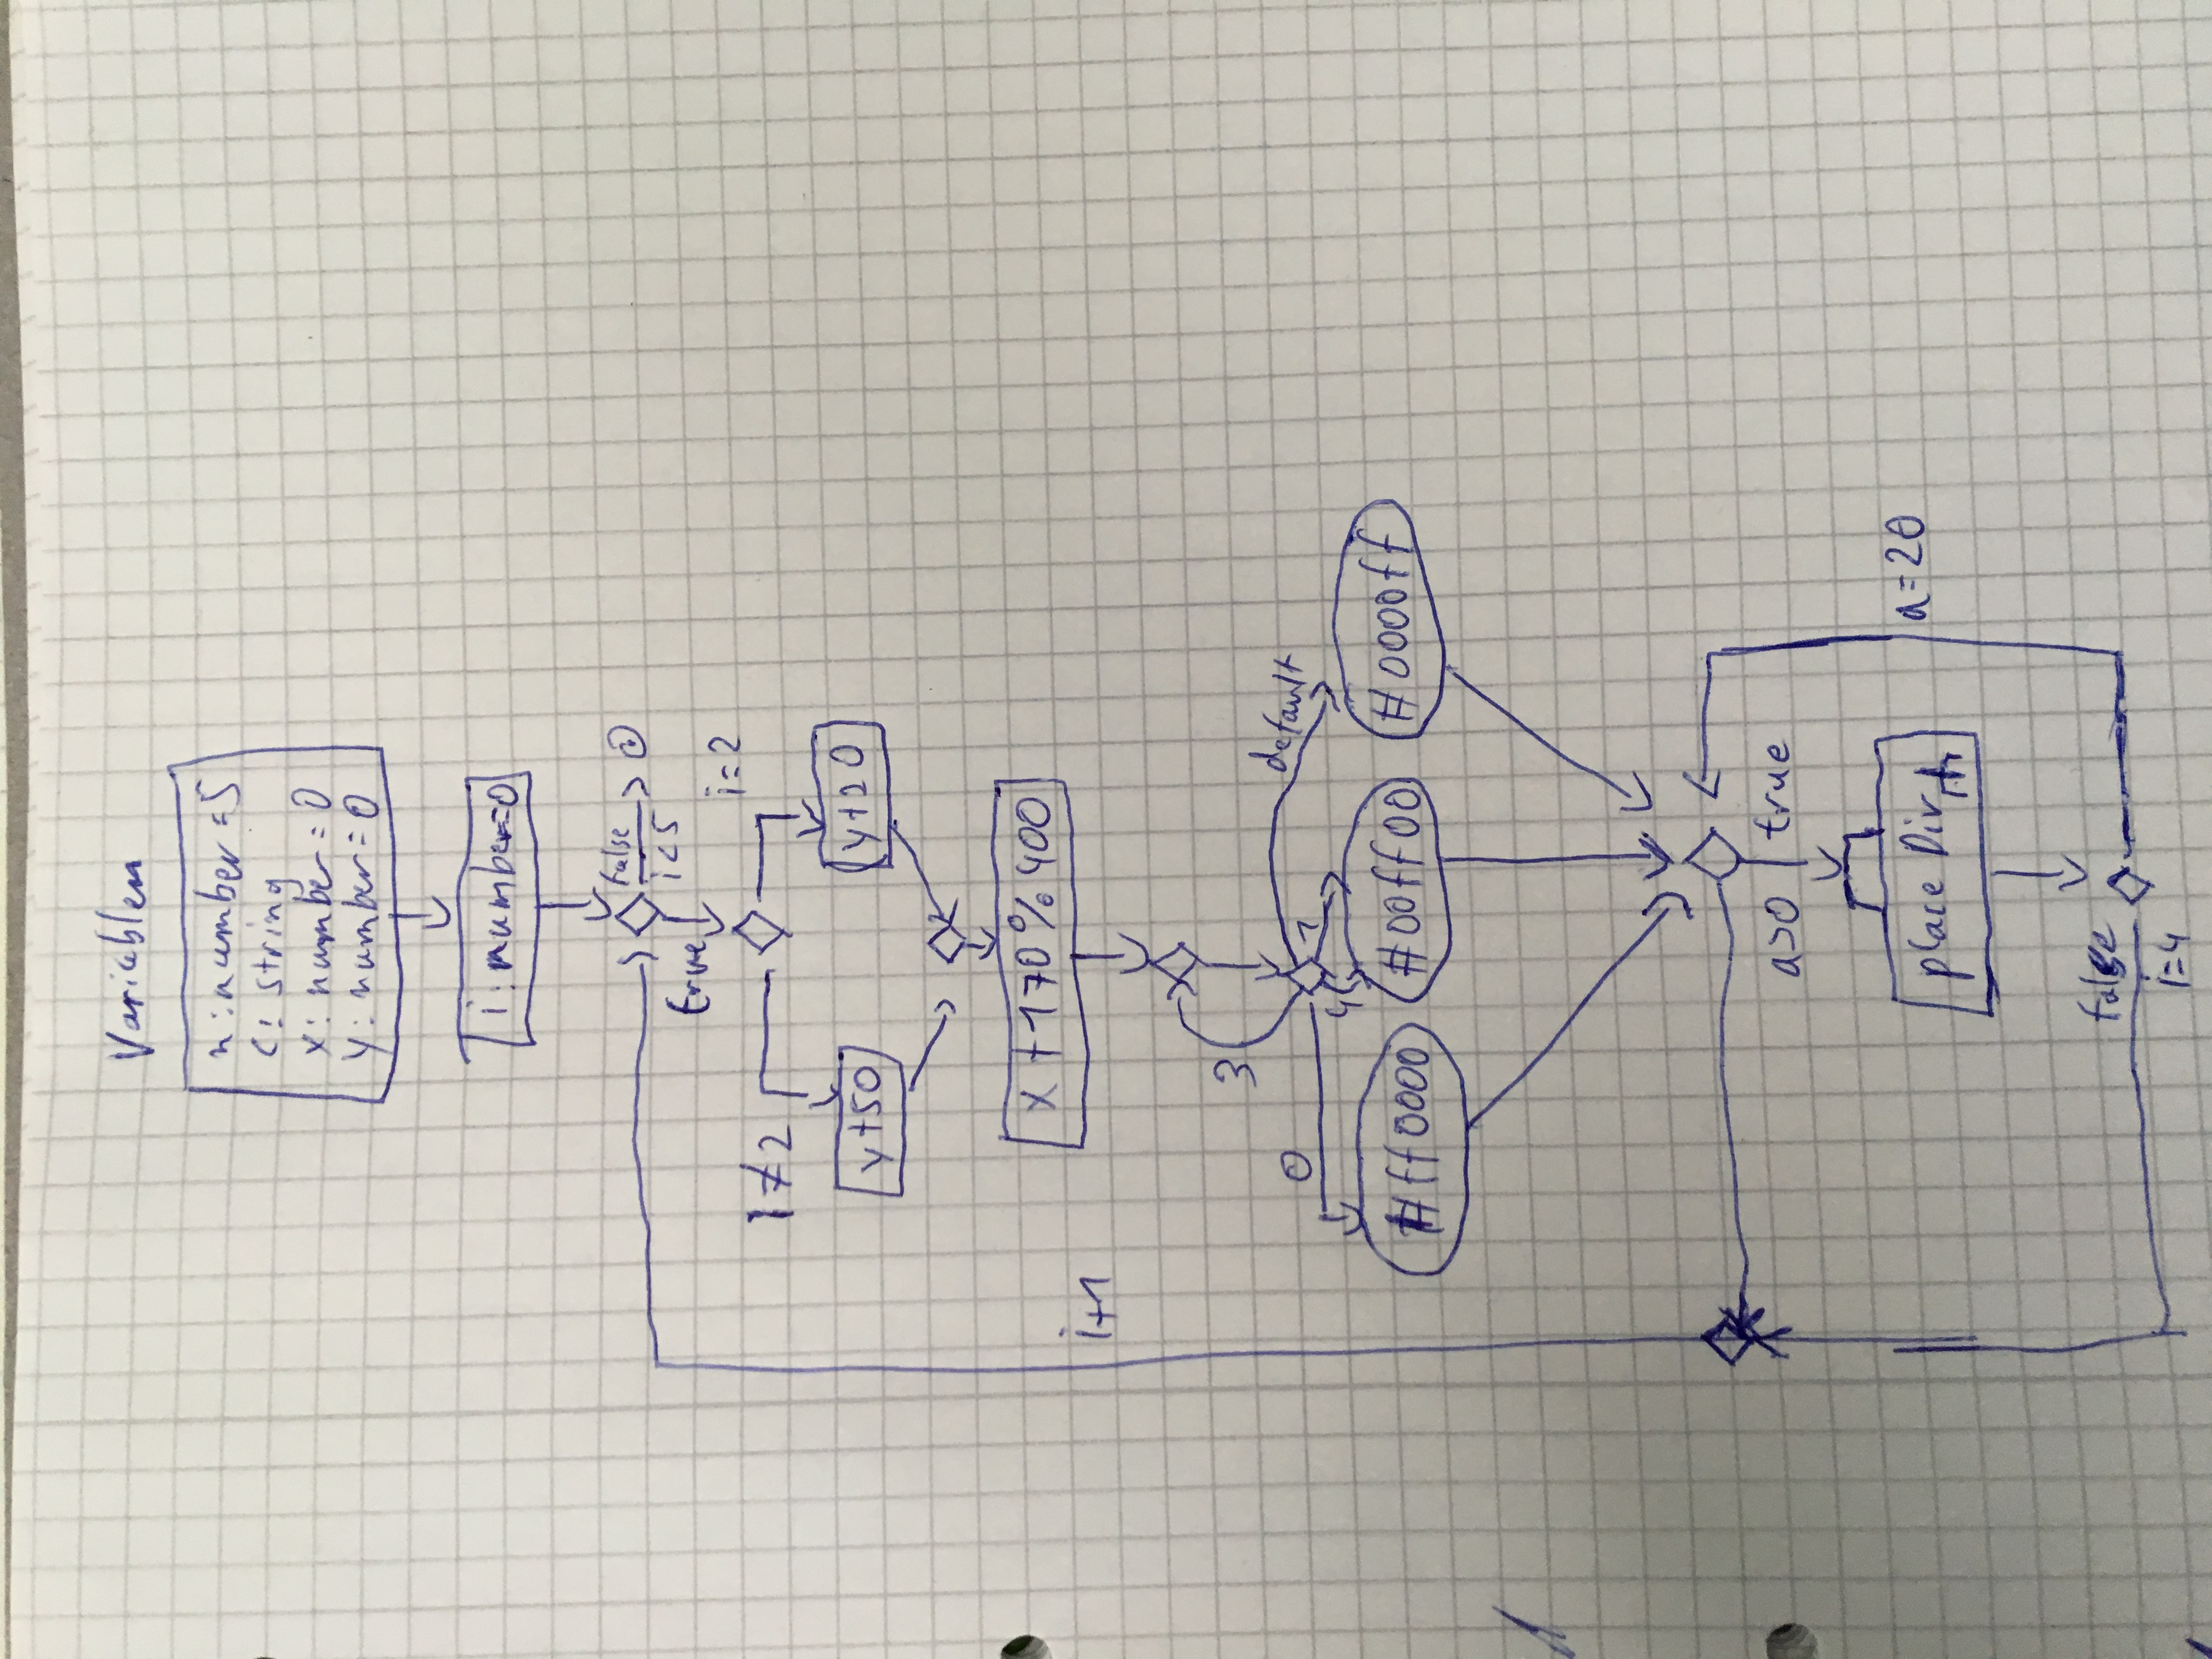 Variablen
n: number = 5
c: string
x: number = 0
y: number = 0
i: number = 0
false
i < 5
true
i = 2
1 ≠ 2
y + 50
y + 20
x + 170 % 400
i + 1
3
default
0
1
4
#ff0000
#00ff00
#0000ff
a > 0
true
place Div
a = 20
false
i = 4